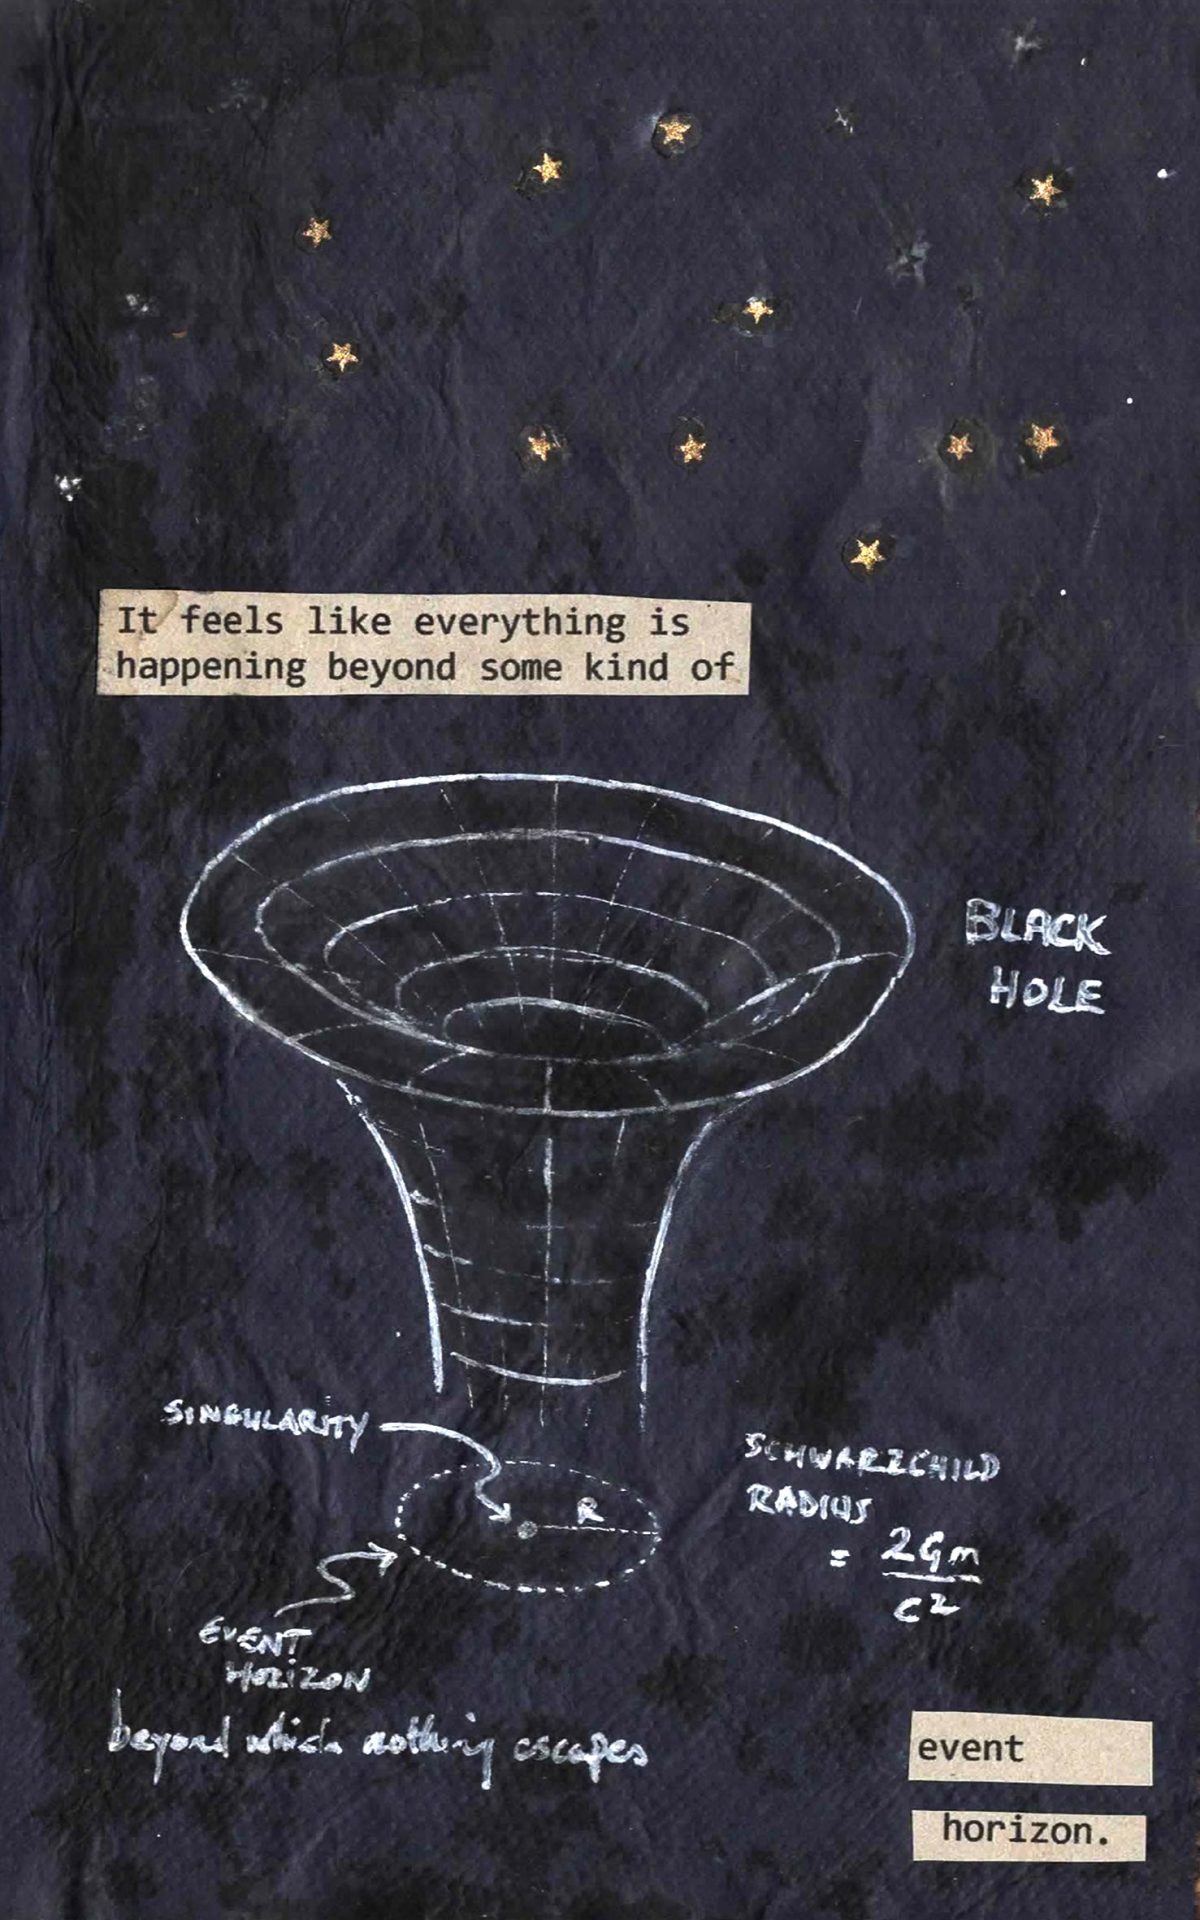 It feels like everything is
happening beyond some kind of
BLACK
HOLE
SINGULARITY
R
SCHWARZCHILD
RADIUS
= 2Gm
c²
EVENT
HORIZON
beyond which nothing escapes
event
horizon.